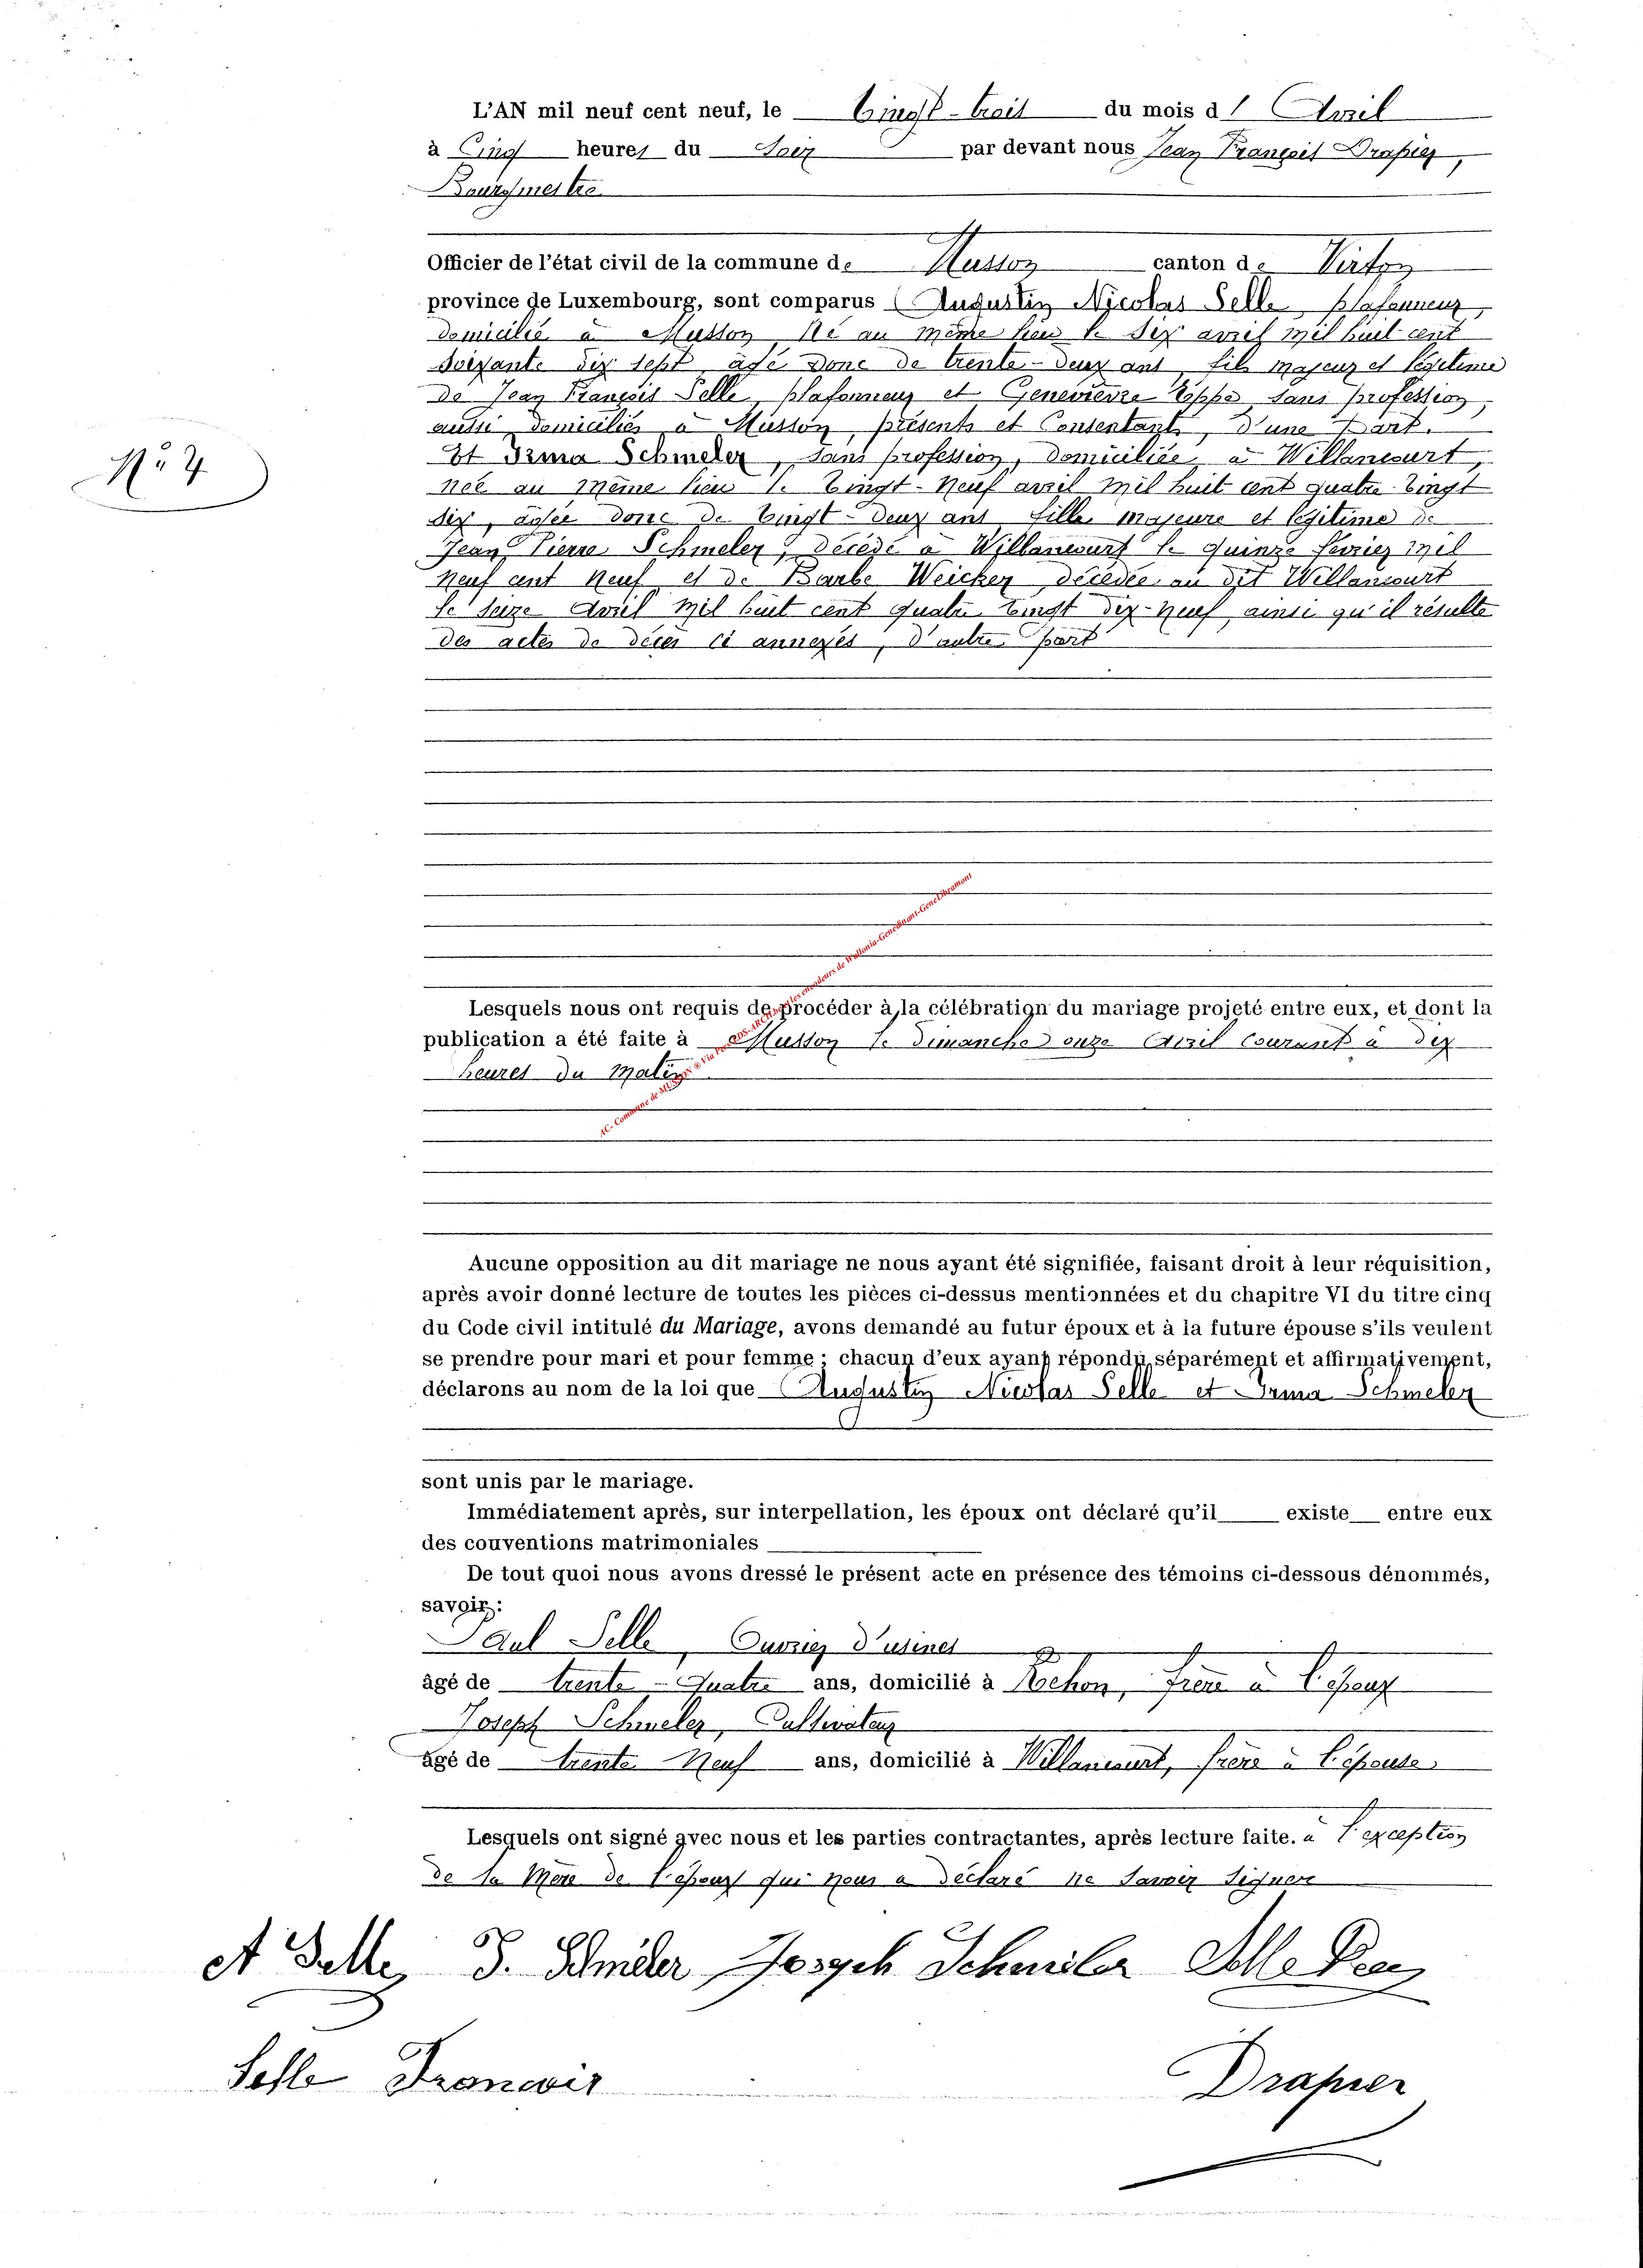 L'AN mil neuf cent neuf, le Vingt-trois du mois d'Avril
à Cinq heures du Soir par devant nous Jean François Drapier,
Bourgmestre
Officier de l'état civil de la commune de Musson canton de Virton
province de Luxembourg, sont comparus Augustin Nicolas Selle, plafonneur,
domicilié à Musson, Né au même lieu le dix avril mil huit cent
soixante dix sept, âgé donc de trente-deux ans, fils majeur et légitime
de Jean François Selle, plafonneur et Geneviève sans profession,
aussi domiciliés à Musson, présents et Consentants, d'une Part.
Et Irma Schmeler, sans profession, domiciliée à Willancourt,
née au même lieu le Vingt-Neuf avril mil huit cent quatre-Vingt
six, âgée donc de Vingt-deux ans, fille majeure et légitime de
Jean Pierre Schmeler, décédé à Willancourt le quinze février mil
Neuf cent Neuf et de Barbe Weicker décédée au dit Willancourt
le seize Avril mil huit cent quatre Vingt dix-neuf, ainsi qu'il résulte
des actes de décès ci annexés, d'autre Part
N° 7
Lesquels nous ont requis de procéder à la célébration du mariage projeté entre eux, et dont la
publication a été faite à Musson le Dimanche onze Avril Courant à dix
heures du Matin
AC- Commune de MUSSON
Aucune opposition au dit mariage ne nous ayant été signifiée, faisant droit à leur réquisition,
après avoir donné lecture de toutes les pièces ci-dessus mentionnées et du chapitre VI du titre cinq
du Code civil intitulé du Mariage, avons demandé au futur époux et à la future épouse s'ils veulent
se prendre pour mari et pour femme ; chacun d'eux ayant répondu séparément et affirmativement,
déclarons au nom de la loi que Augustin Nicolas Selle et Irma Schmeler
sont unis par le mariage.
Immédiatement après, sur interpellation, les époux ont déclaré qu'il existe entre eux
des couventions matrimoniales
De tout quoi nous avons dressé le présent acte en présence des témoins ci-dessous dénommés,
savoir :
Paul Selle, Ouvrier d'usines
âgé de trente-Quatre ans, domicilié à frère à l'époux
Joseph Schmeler, Cultivateur
âgé de trente Neuf ans, domicilié à Willancourt, frère à l'épouse
Lesquels ont signé avec nous et les parties contractantes, après lecture faite. à l'exception
de la Mère de l'époux qui nous a déclaré ne savoir signer
A Selle J. Schmeler Joseph Schmeler Selle
Selle Francois Drapier